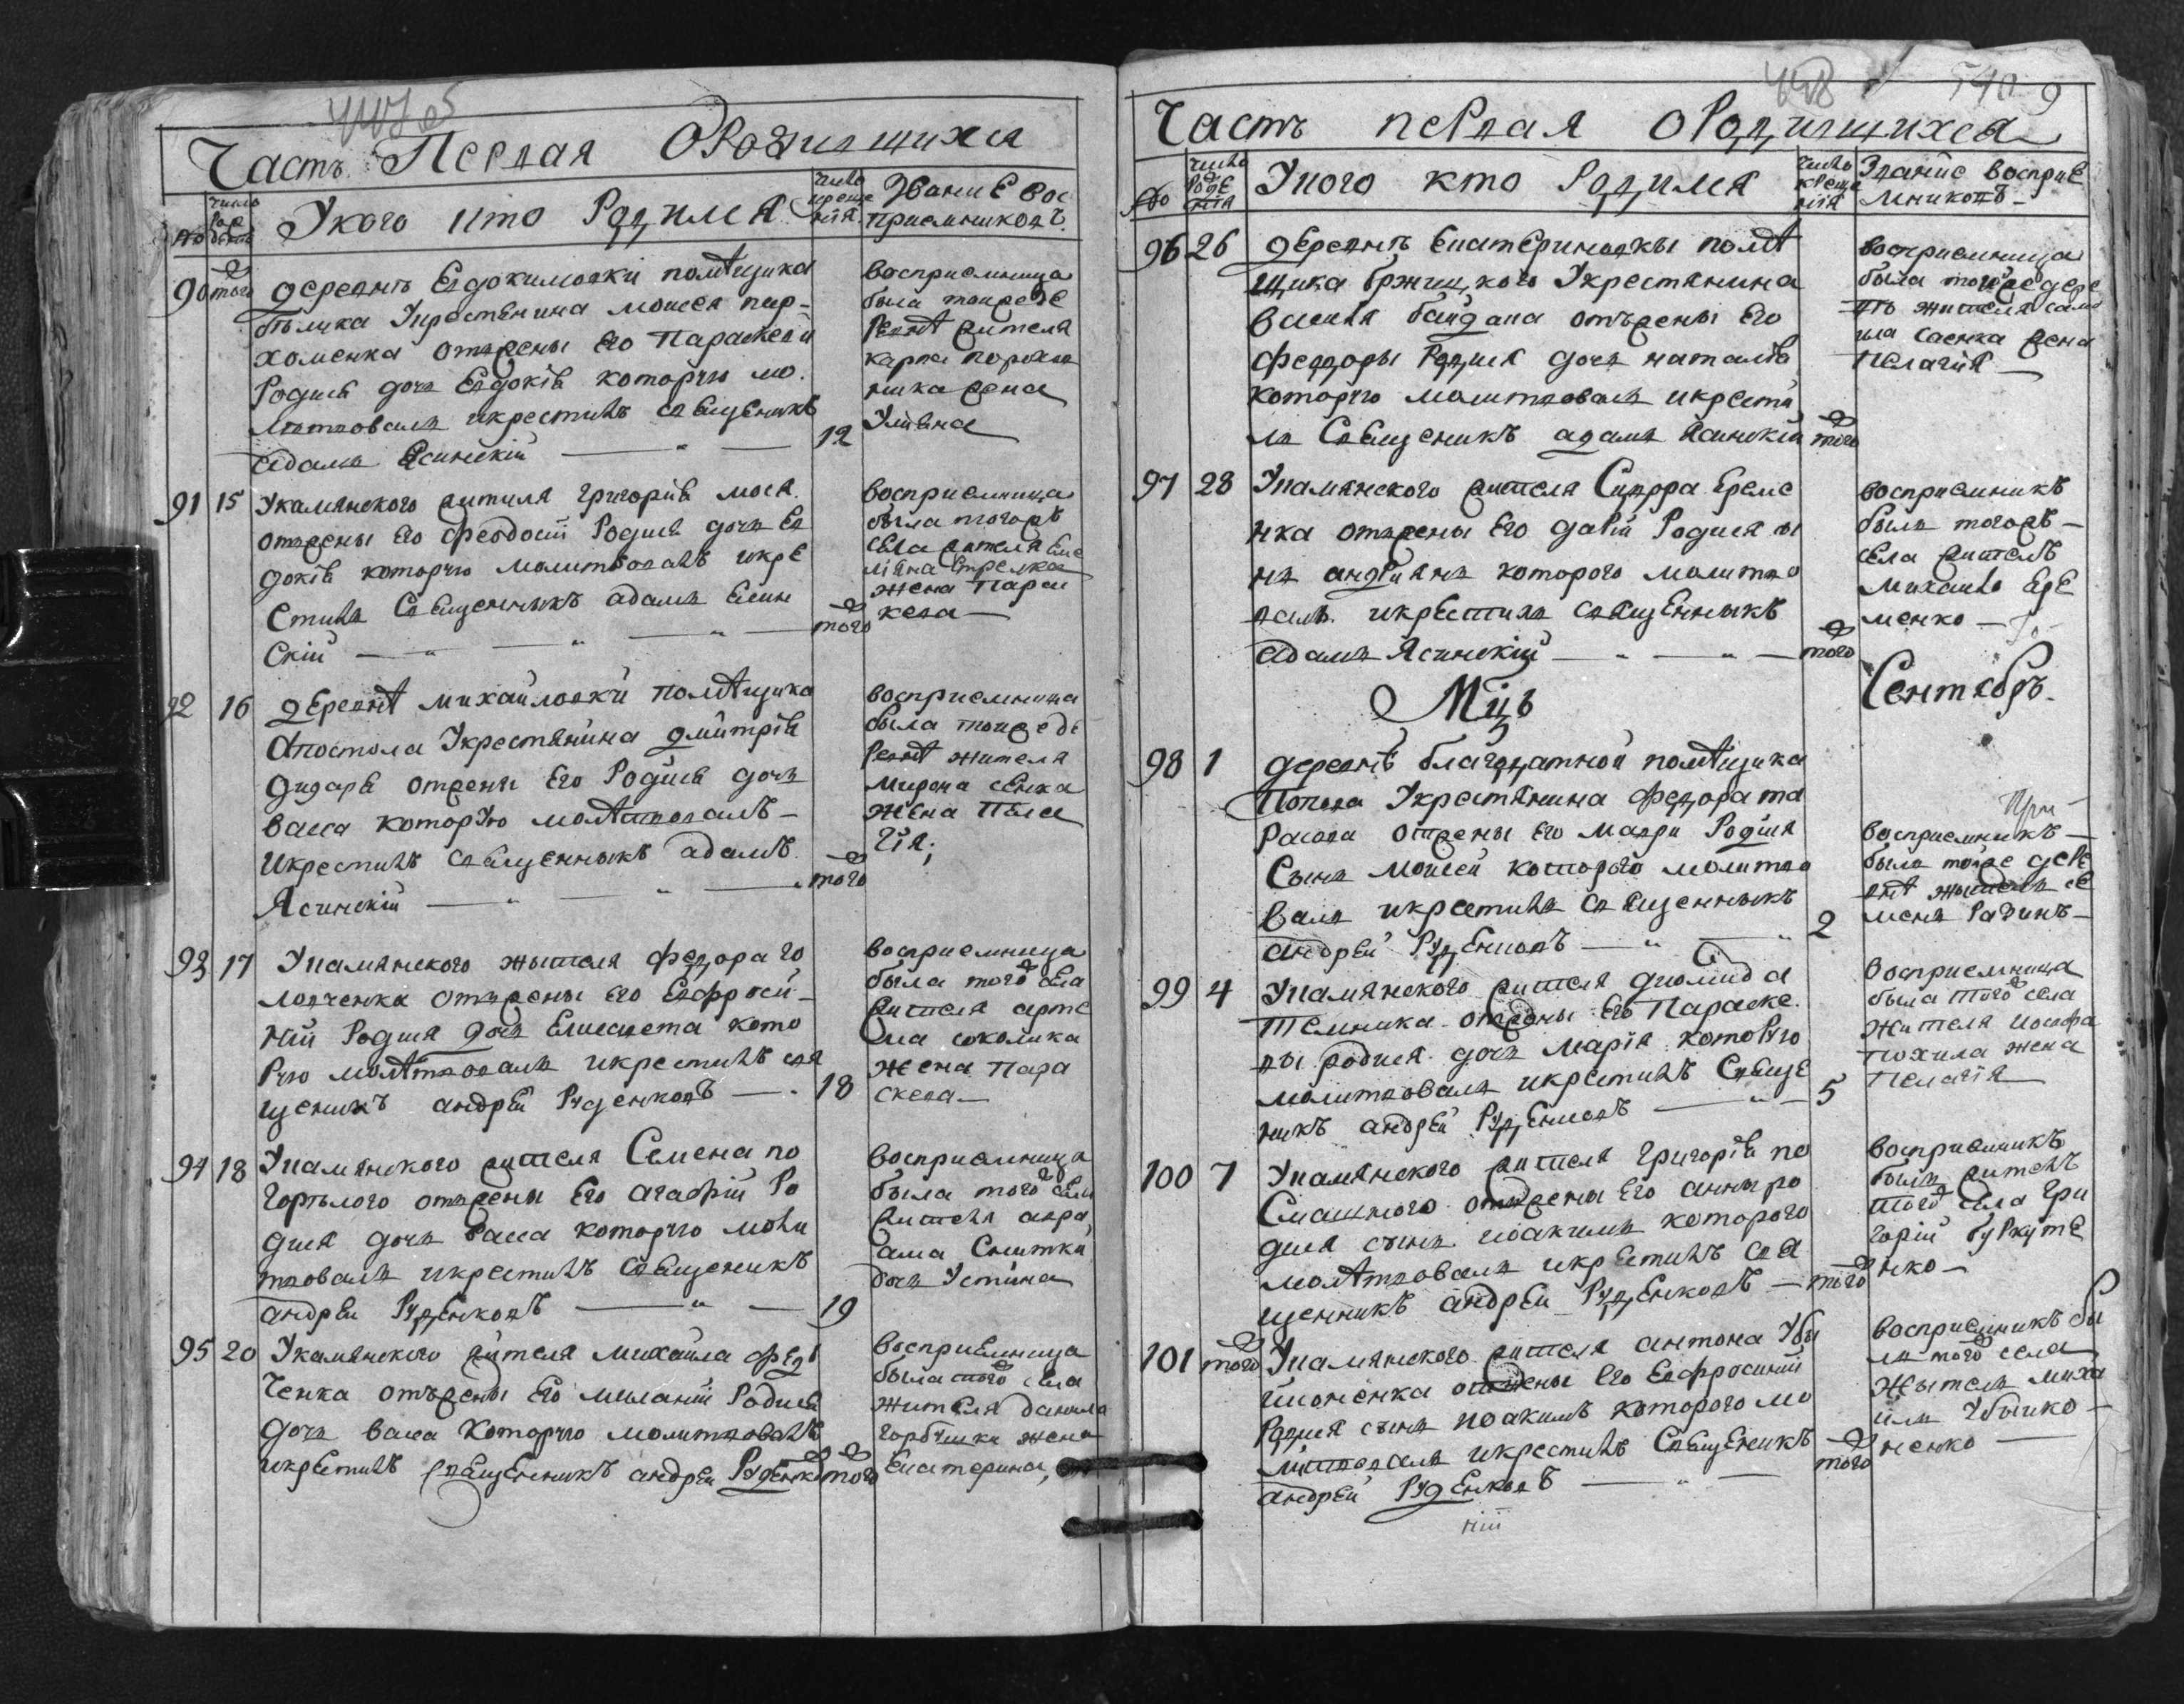 Часть Первая О Родившихся
Число рождения
У кого кто Родился
Число крещенія
Званiе вос
приемниковъ
90 того
деревнѣ Евдокимовки помѣщика
у крестянина моисея пар-
хоменка отжены его Параскеви
Родися дочъ Евдокія которую мо
литвовалъ икрестилъ священикъ
адамъ Ясинскій
12
восприемница
была тоижде
ревнѣ жителя
карпа
жена
Улияна
91 15
Укамянского жителя григорія мося
отжены его феодосіи Родися дочъ Ев
докія которую молитвовалъ икре
стилъ Священныкъ адамъ Ясин
скій
того
восприемница
была тогожъ
села жителя Еме
ліяна стрелка
жена Парас
кева
92 16
деревнѣ михайловки помѣщика
Апостола Укрестянина дмитрія
дидара отжены Его Родися дочъ
васса которую молѣтвовалъ
икрестилъ священныкъ адамъ
Ясинскій
того
восприемница
была тоижеде
ревнѣ жителя
мирона сенка
жена Пела
гія
93 17
Укамянского жытеля федора го
ловченка отжены его Евфроси-
ніи Родися дочъ Елисавета кото
рую молѣтвовалъ икрестилъ свя
щеникъ андрей Руденковъ
18
восприемница
была того села
жителя арте
ма соколика
жена пара
скева
94 18
Укамянского жителя Семена по
горѣлого отжены Его агафіи Ро
дися дочъ васса которую моли
твовалъ икрестилъ священикъ
андрей Руденковъ
19
восприемница
была того села
жителя авра
ама Снитки
дочъ Устина
95 20
Укамянского жителя михаила фед
ченка отъжены Его миланіи Родися
дочъ васса которую молитвовалъ
икрестилъ священникъ андрей Руденко
того
восприемница
была того села
жителя данила
горбушки жена
Екатерина
Часть первая о Родившихся
Число рожденія
У кого кто Родился
Число крещенія
Званіе восприе
мниковъ
96 26
деревнѣ Екатериновкы помѣ
щика бржицкого Укрестянина
василя байдака отъжены его
феодоры Родися дочъ наталія
которую молитвовалъ икрести
лъ Священикъ адамъ Ясинскій
того
восприемница
была тоежедере
внѣ жителя само
ила саенка жена
Пелагія
97 28
Укамянского жителя Сидора Ереме
нка отжены Его дарій Родися сы
нъ андріянъ которого молитво
валъ икрестилъ священныкъ
адамъ Ясинскій
того
восприемникъ
былъ тогожъ
села жителъ
михаило Ере
менко
Мцъ
Сентябръ
98 1
деревнѣ благодатной помѣщика
Попова Укрестянина федора та
расова отжены его маври Родися
Сынъ моисей которого молитво
валъ икрестилъ священныкъ
андрей Руденковъ
2
восприемникъ
былъ тоиже дере
внѣ жытель се
менъ
99 4
Укамянского жителя диомида
отжены его Параске
вы родися дочъ марія которую
молитвовалъ икрестилъ Свяще
никъ андрей Руденковъ
5
восприемница
была того села
жителя иосифа
жена
Пелагія
100 7
Укамянского жителя григорія по
Смашного отжены Его анны ро
дися сынъ иоакимъ которого
молѣтвовалъ икрестилъ свя
щенникъ андрей Руденковъ
того
восприемникъ
былъ жителъ
того села гри
горій буркуте
нко
101 того
Укамянского жителя антона Убы
йконенка отжены его Евфросиніи
Родися сынъ иоакимъ которого мо
литвовалъ икрестилъ Священикъ
андрей Руденковъ
того
восприемникъ бы
лъ того села
жытель миха
илъ Убыйко
ненко